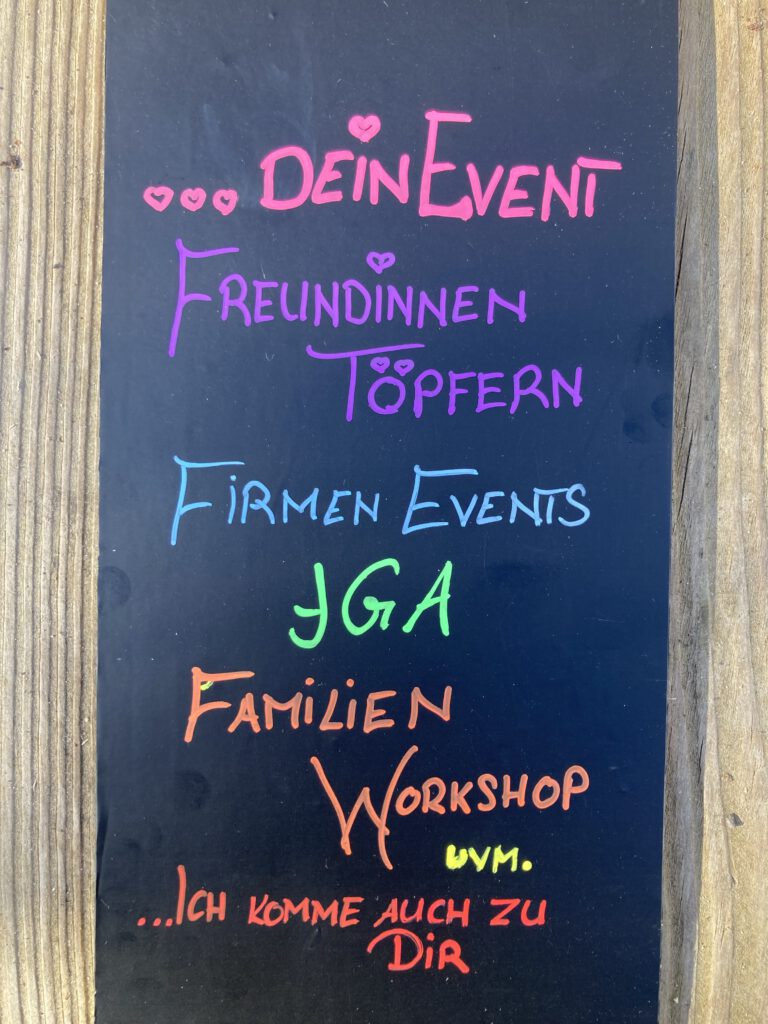 ... DEIN EVENT
FREUNDINNEN
TÖPFERN
FIRMEN EVENTS
JGA
FAMILIEN
WORKSHOP
UVM.
...ICH KOMME AUCH ZU
DIR